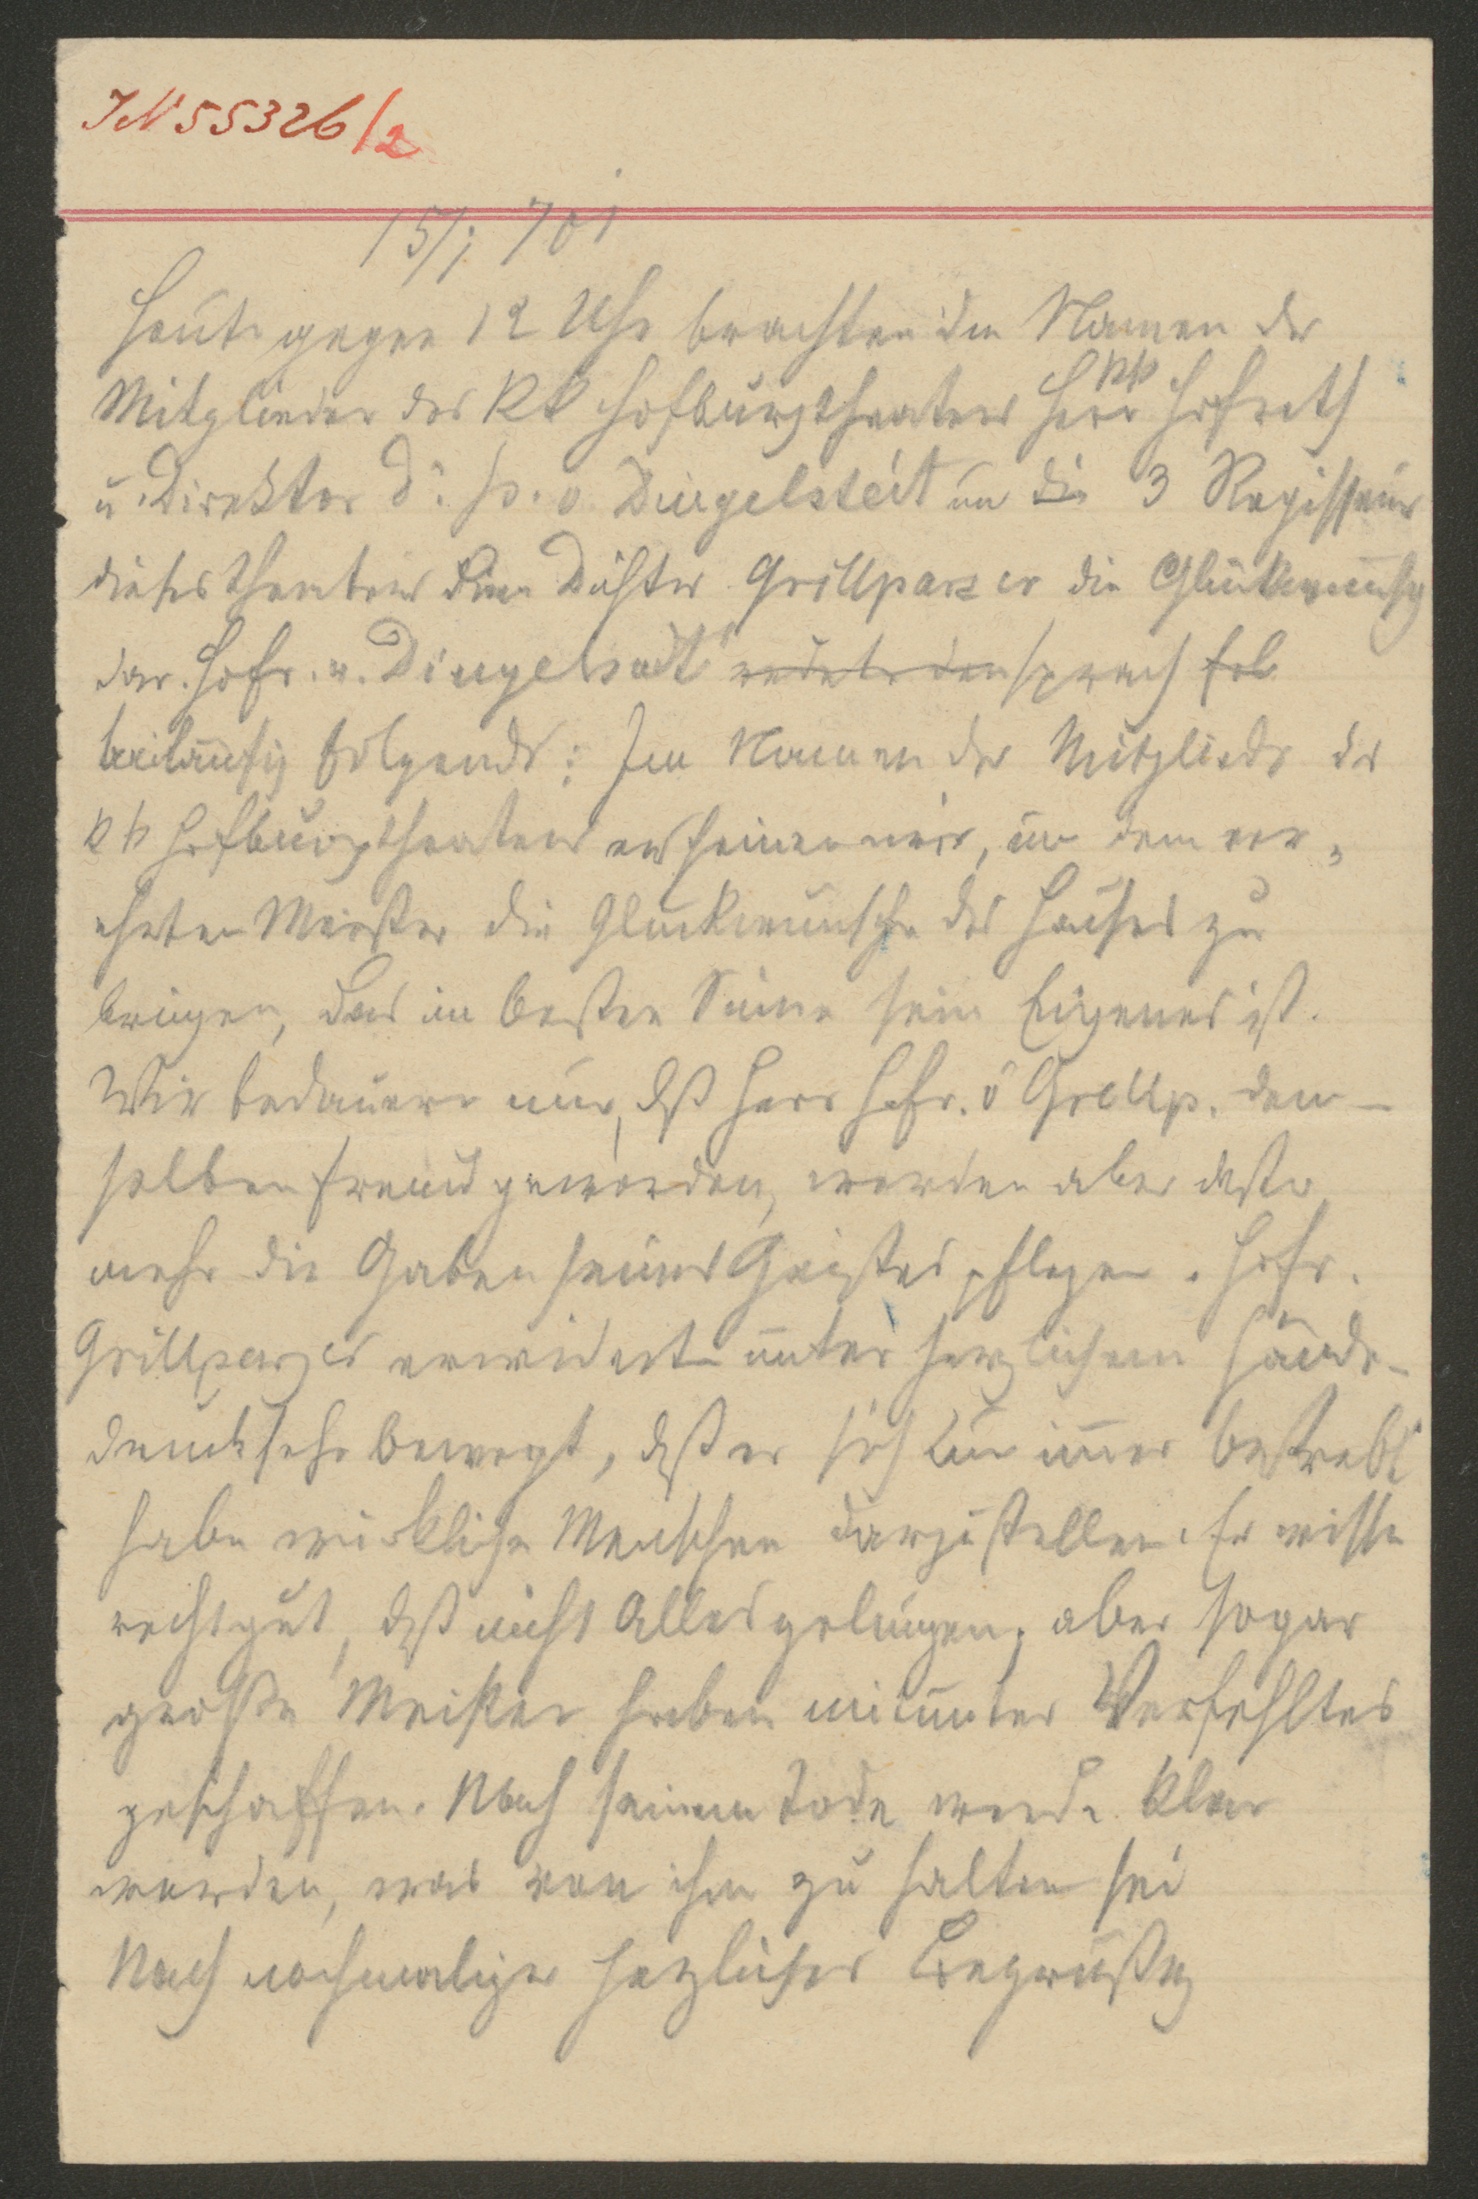 IN 55326/2
15/1 701
Heute gegen 12 Uhr brachten im Namen der
Mitglieder des KK Hofburgtheaters Herr kk Hofrath
u. Direktor Dr. v. Dingelstedt u die 3 Regisseure
dieses Theaters dem Dichter Grillparzer die Glückwünsche
dar. Hofr. v. Dingelstedt redete den sprach fol
beiläufig folgends: Im Namen der Mitglieder des
kk Hofburgtheaters erscheinen wir, um dem ver-
ehrten Meister die Glückwünsche des Hauses zu
bringen, das im besten Sinne sein Eigenes ist.
Wir bedauern nur, dß Herr Hofr. v Grillp. dem-
selben fremd geworden, werden aber desto
mehr die Gaben seines Geistes pflegen. Hofr.
Grillparzer erwiderte unter herzlichem Hände-
druck sehr bewegt, dß er sich nur immer bestrebt
habe wirkliche Menschen darzustellen. Er wisse
recht gut, dß nicht Alles gelungen; aber sogar
große Meister haben mitunter Verfehltes
geschaffen. Nach seinem Tode werde klar
werden, was von ihm zu halten sei
Nach nochmaliger herzlicher Begrüßg